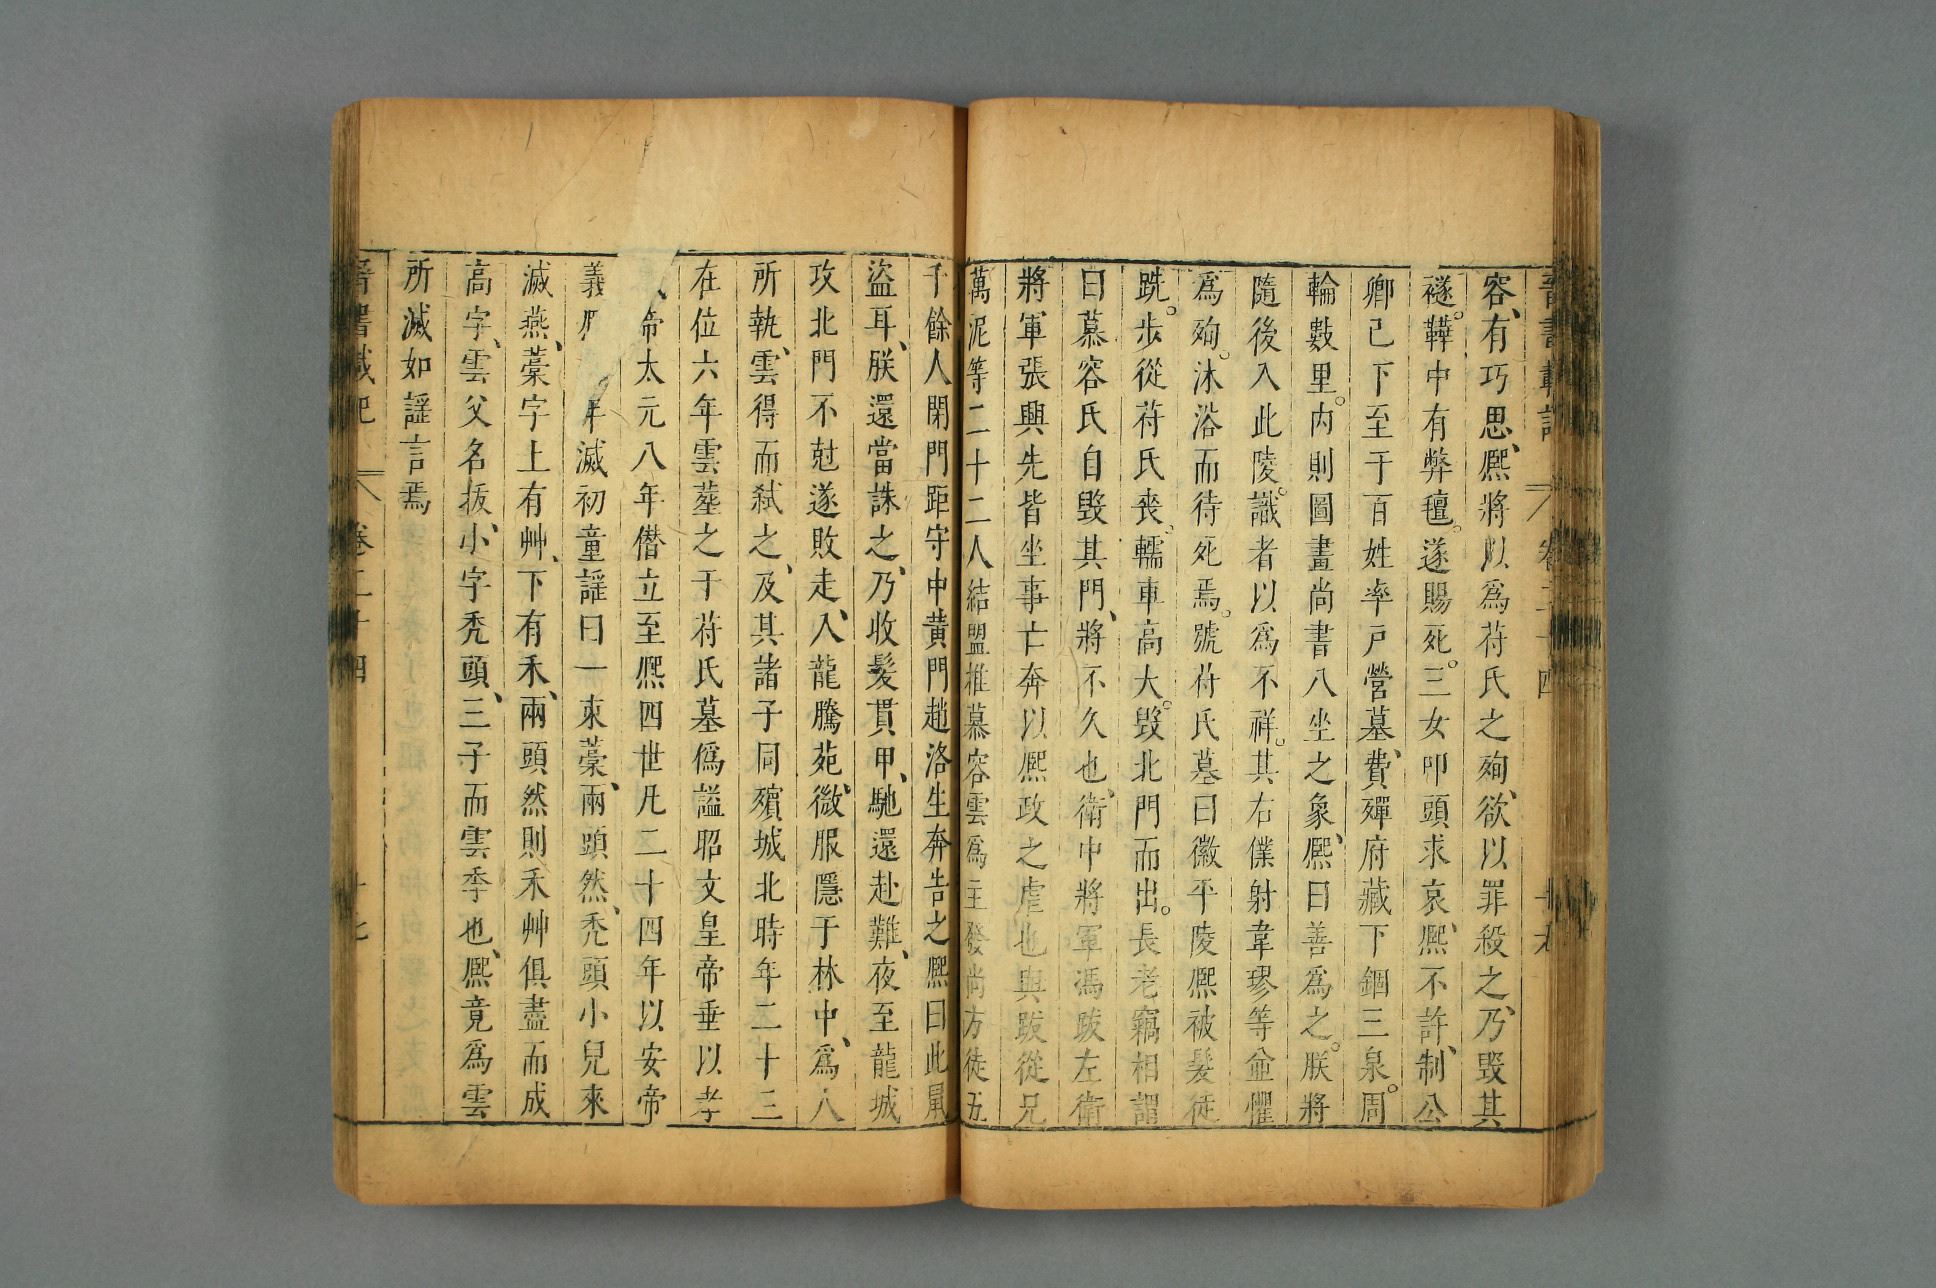 晉書載記 卷二十四
容、有巧思、熙將以爲苻氏之殉、欲以罪殺之、乃毀其
襚。鞾中有弊氊。遂賜死。三女叩頭求哀、熙不許、制公
卿已下至于百姓率戸營墓、費殫府藏下錮三泉。周
輪數里。内則圖畫尚書八坐之象、熙曰善爲之。朕將
隨後入此陵。識者以爲不祥。其右僕射韋璆等並懼
爲殉。沐浴而待死焉。號苻氏墓曰徽平陵熙被髮徒
跣。步從苻氏喪、轜車高大。毀北門而出。長老竊相謂
曰慕容氏自毀其門、將不久也、衛中將軍馮跋左衛
將軍張興先皆坐事亡奔以熙政之虐也與跋從兄
萬泥等二十二人結盟推慕容雲爲主發尚方徒五
千餘人閉門距守中黄門趙洛生奔告之熙曰此鼠
盜耳、朕還當誅之、乃收髮貫甲、馳還赴難、夜至龍城
攻北門不尅遂敗走、入龍騰苑、微服隱于林中、爲人
所執、雲得而弑之、及其諸子同殯城北時年二十三
在位六年雲葬之于苻氏墓僞謚昭文皇帝垂以孝
帝太元八年僭立至熙四世凡二十四年以安帝
義 滅初童謡曰一束藁、兩頭然、禿頭小兒來
滅燕、藁字上有艸、下有禾、兩頭然則禾艸俱盡而成
高字、雲父名拔、小字禿頭、三子而雲季也、熙竟爲雲
所滅如謡言焉
晉書載記 卷二十四 十七